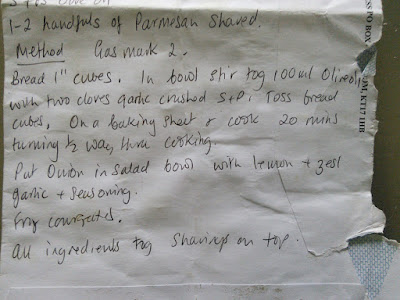 1-2 handfuls of Parmesan Shaved.
Method Gas mark 2.
Bread 1" cubes. In bowl stir tog 100ml Olive oil
with two cloves garlic crushed S+P. Toss bread
cubes. On a baking sheet & cook 20 mins
turning ½ way thru cooking.
Put Onion in Salad bowl with lemon + zest
garlic + seasoning.
Fry courgettes.
All ingredients tog Shavings on top.
KT17 1TB
PO BOX